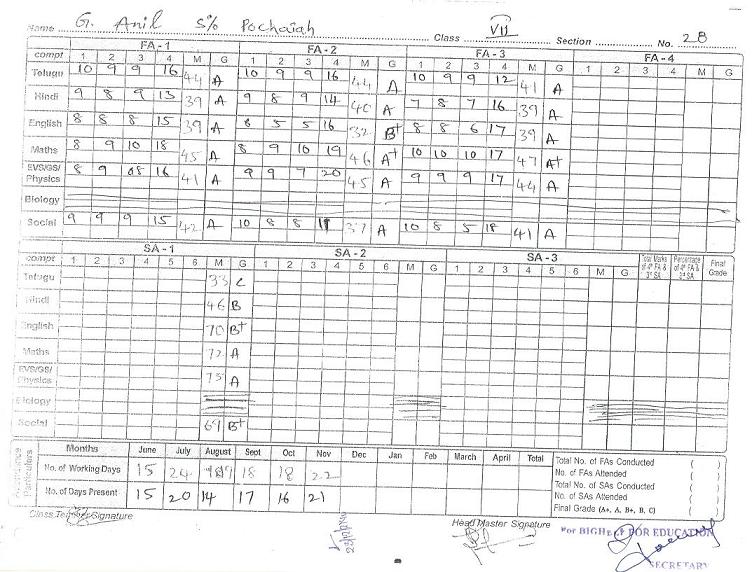 Name G. Anil S/o Pochaiah Class VII Section No. 28
FA - 1 FA - 2 FA - 3 FA - 4
compt 1 2 3 4 M G 1 2 3 4 M G 1 2 3 4 M G 1 2 3 4 M G
Telugu 10 9 9 16 44 A 10 9 9 16 44 A 10 9 9 12 41 A
Hindi 9 8 9 13 39 A 9 8 9 14 40 A 7 8 7 16 39 A
English 8 8 8 15 39 A 6 5 5 16 32 B+ 8 8 6 17 39 A
Maths 8 9 10 18 45 A 8 9 10 19 46 A+ 10 10 10 17 47 A+
EVS/GS/ Physics 8 9 08 16 41 A 9 9 7 20 45 A 9 9 9 17 44 A
Biology
Social 9 9 9 15 42 A 10 8 8 11 37 A 10 8 5 18 41 A
SA - 1 SA - 2 SA - 3
compt 1 2 3 4 5 6 M G 1 2 3 4 5 6 M G 1 2 3 4 5 6 M G Total Marks of 4th FA & 3rd SA Percentage of 4th FA & 3rd SA Final Grade
Telugu 33 C
Hindi 46 B
English 70 B+
Maths 72 A
EVS/GS/ Physics 75 A
Biology
Social 69 B+
Attendance Particulars
Months June July August Sept Oct Nov Dec Jan Feb March April Total
No. of Working Days 15 24 18 18 22
No. of Days Present 15 20 14 17 16 21
Total No. of FAs Conducted ( )
No. of FAs Attended ( )
Total No. of SAs Conducted ( )
No. of SAs Attended ( )
Final Grade (A+, A, B+, B, C) ( )
Class Teacher Signature Head Master Signature For BIGHELP FOR EDUCATION
SECRETARY